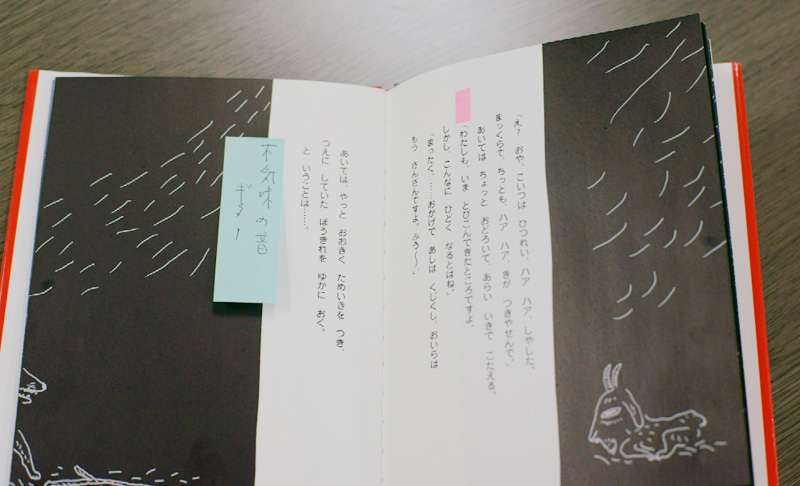 「え？　おや、こいつは　ひつれい、ハア　ハア、しやした。
まっくらで、ちっとも、ハア　ハア、きが　つきやせんで。」
あいては　ちょっと　おどろいて、あらい　いきで　こたえる。
「わたしも、いま　とびこんできたところですよ。
しかし、こんなに　ひどく　なるとはね。」
「まったく、……おかげで　あしは　くじくし、おいらは
もう　さんざんですよ。ふう〜〜。」
あいては　やっと　おおきく　ためいきを　つき、
つえに　していた　ぼうきれを　ゆかに　おく。
と　いうことは……。
不気味の音